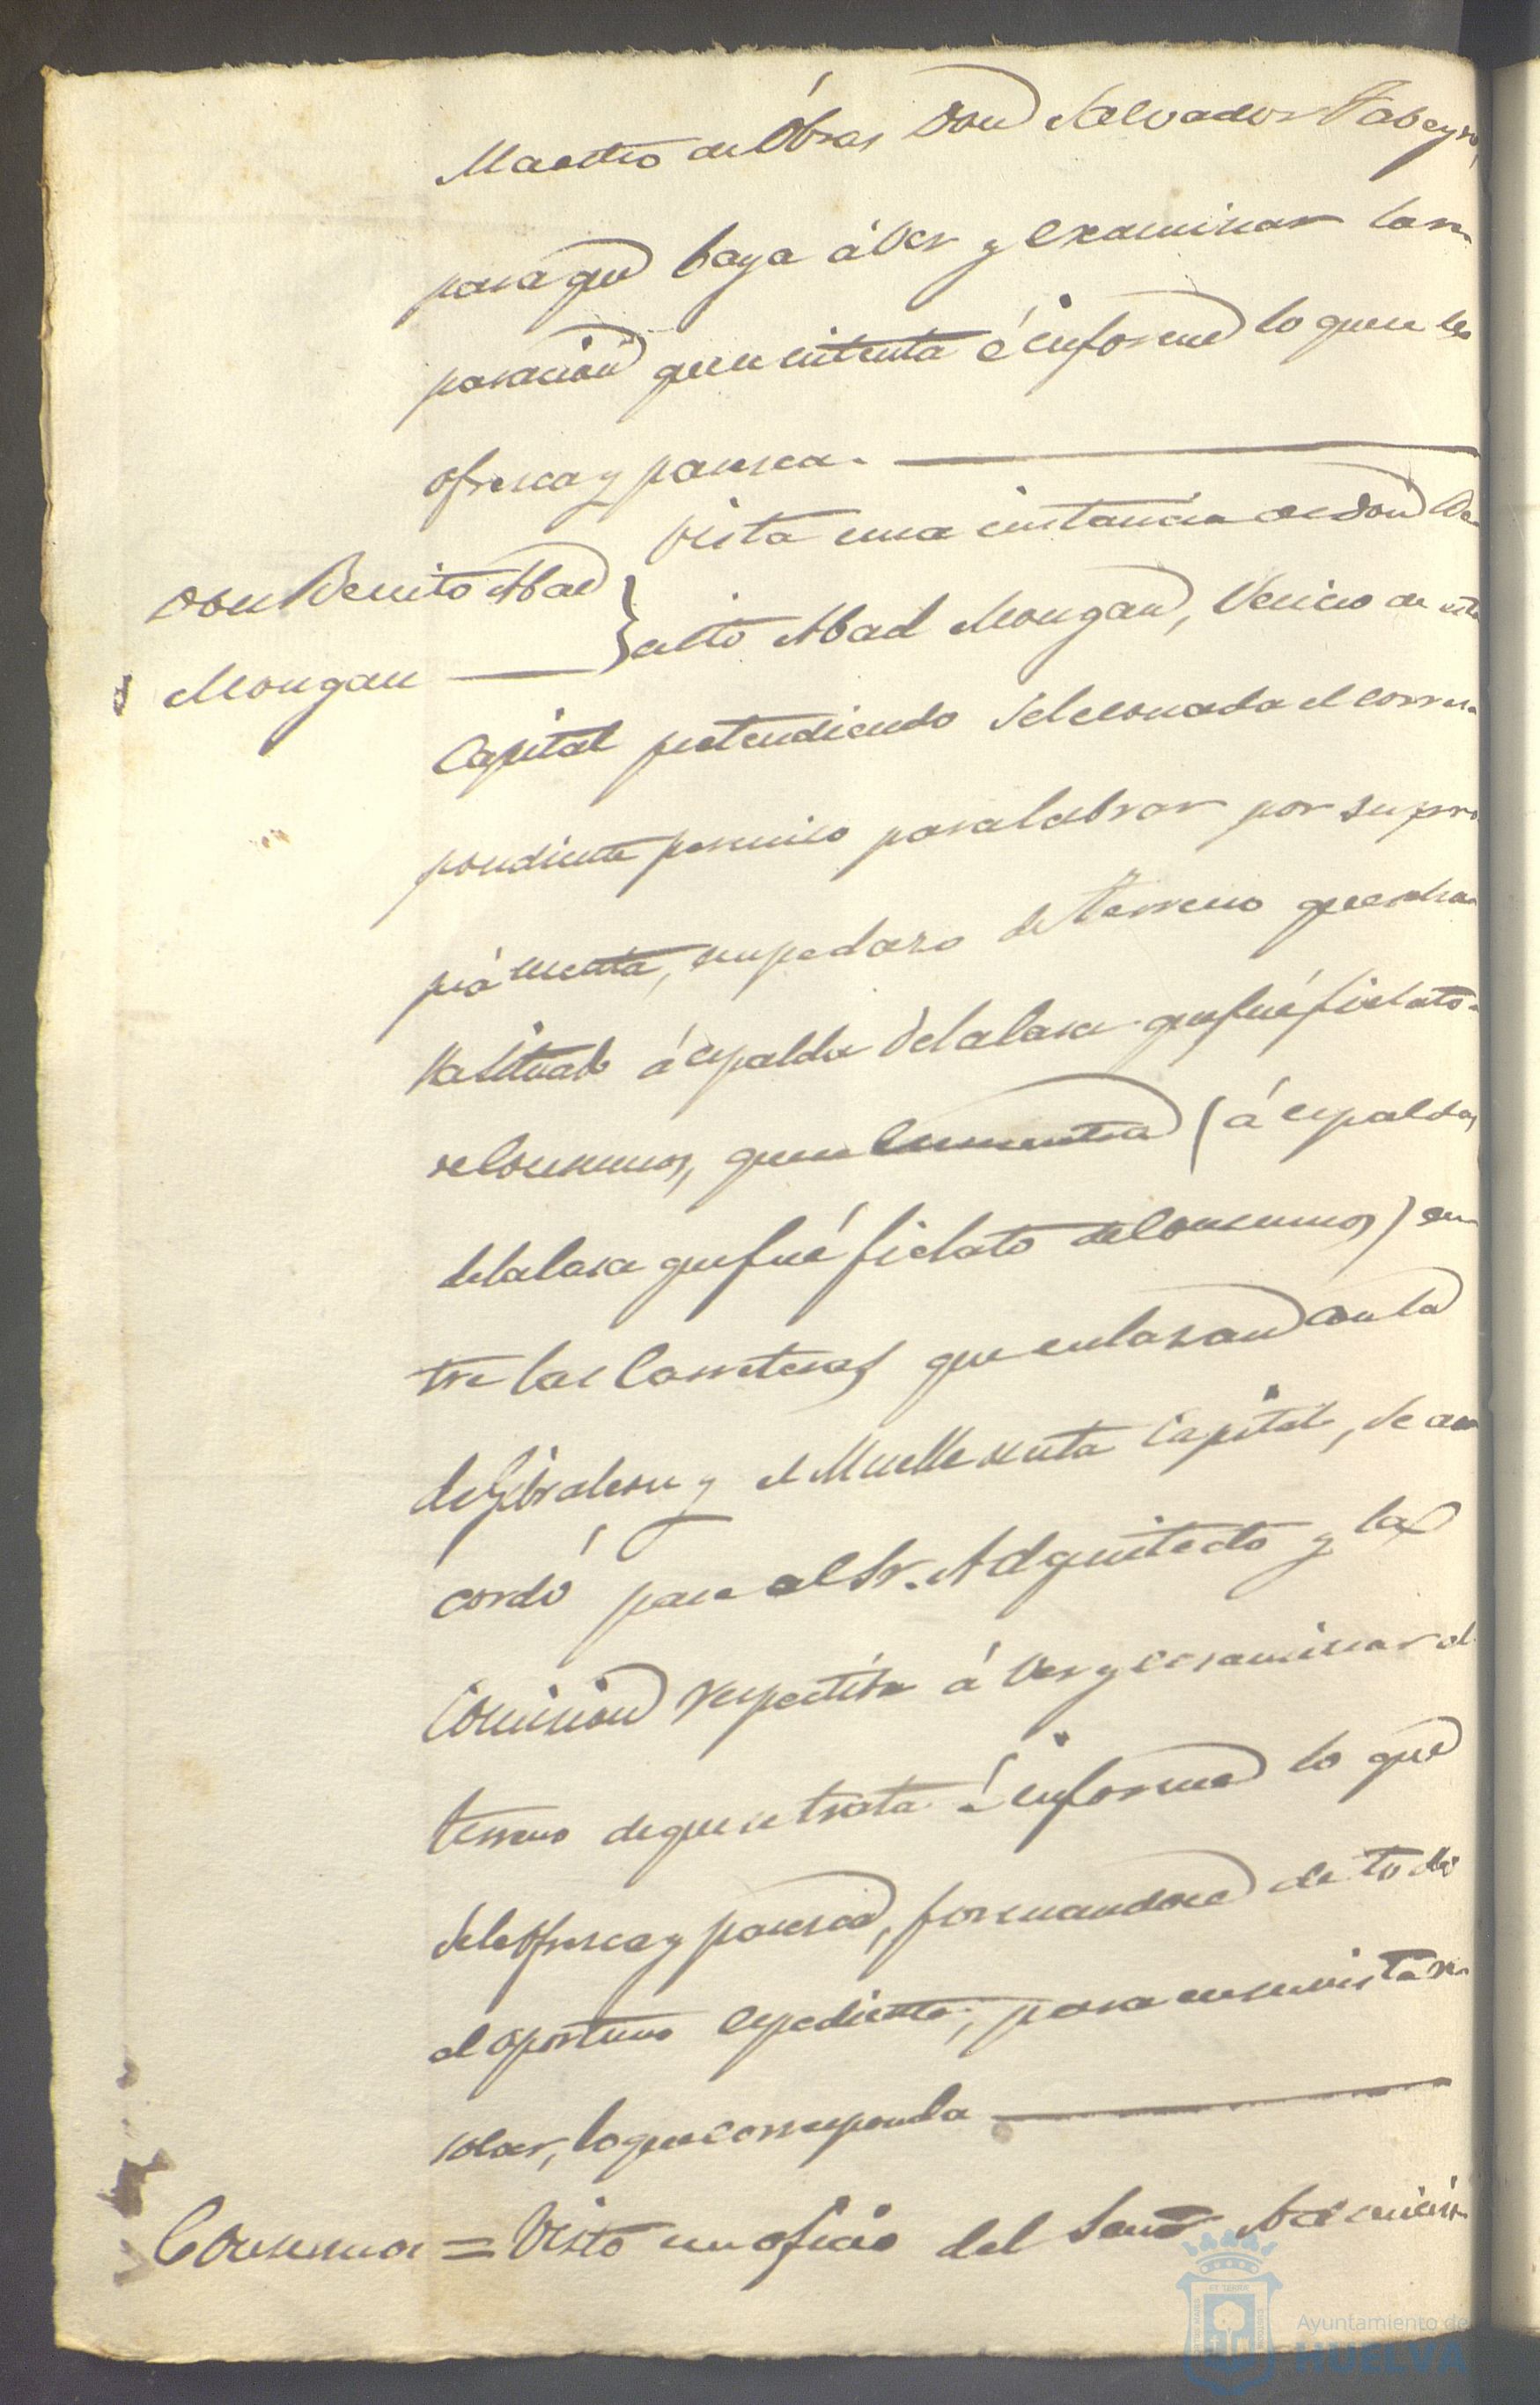 Maestro de Obras Don Salvador Fabeyro,
para que baya á ver y examinar la re
paracion que se intenta é informe lo que se le
ofresca y paresca.
Vista una instancia de Don Be
Don Benito Abad
Mongan
nito Abad Mongan, Vecino de esta
Capital pretendiendo se le conceda el corres
pondiente permiso para labrar por su pro
pia cuenta, un pedazo de terreno que se ha
lla situado á espalda de la casa que fué fielato
de Consumos, que se encuentra (á espaldas
de la casa que fué fielato de Consumos) en
tre las Carreteras que enlazan con la
de Gibraleon y el Muelle de esta Capital, se a
cordó pase al Sr. Adquitecto y la
Comision respectiva á ver y examinar el
terreno de que se trata é informe lo que
se le ofresca y paresca, formandose de todo
el oportuno expediente, para en su vista re
solver, lo que corresponda
Consumos = Visto un oficio del Señor Adminis
Ayuntamiento de
HUELVA